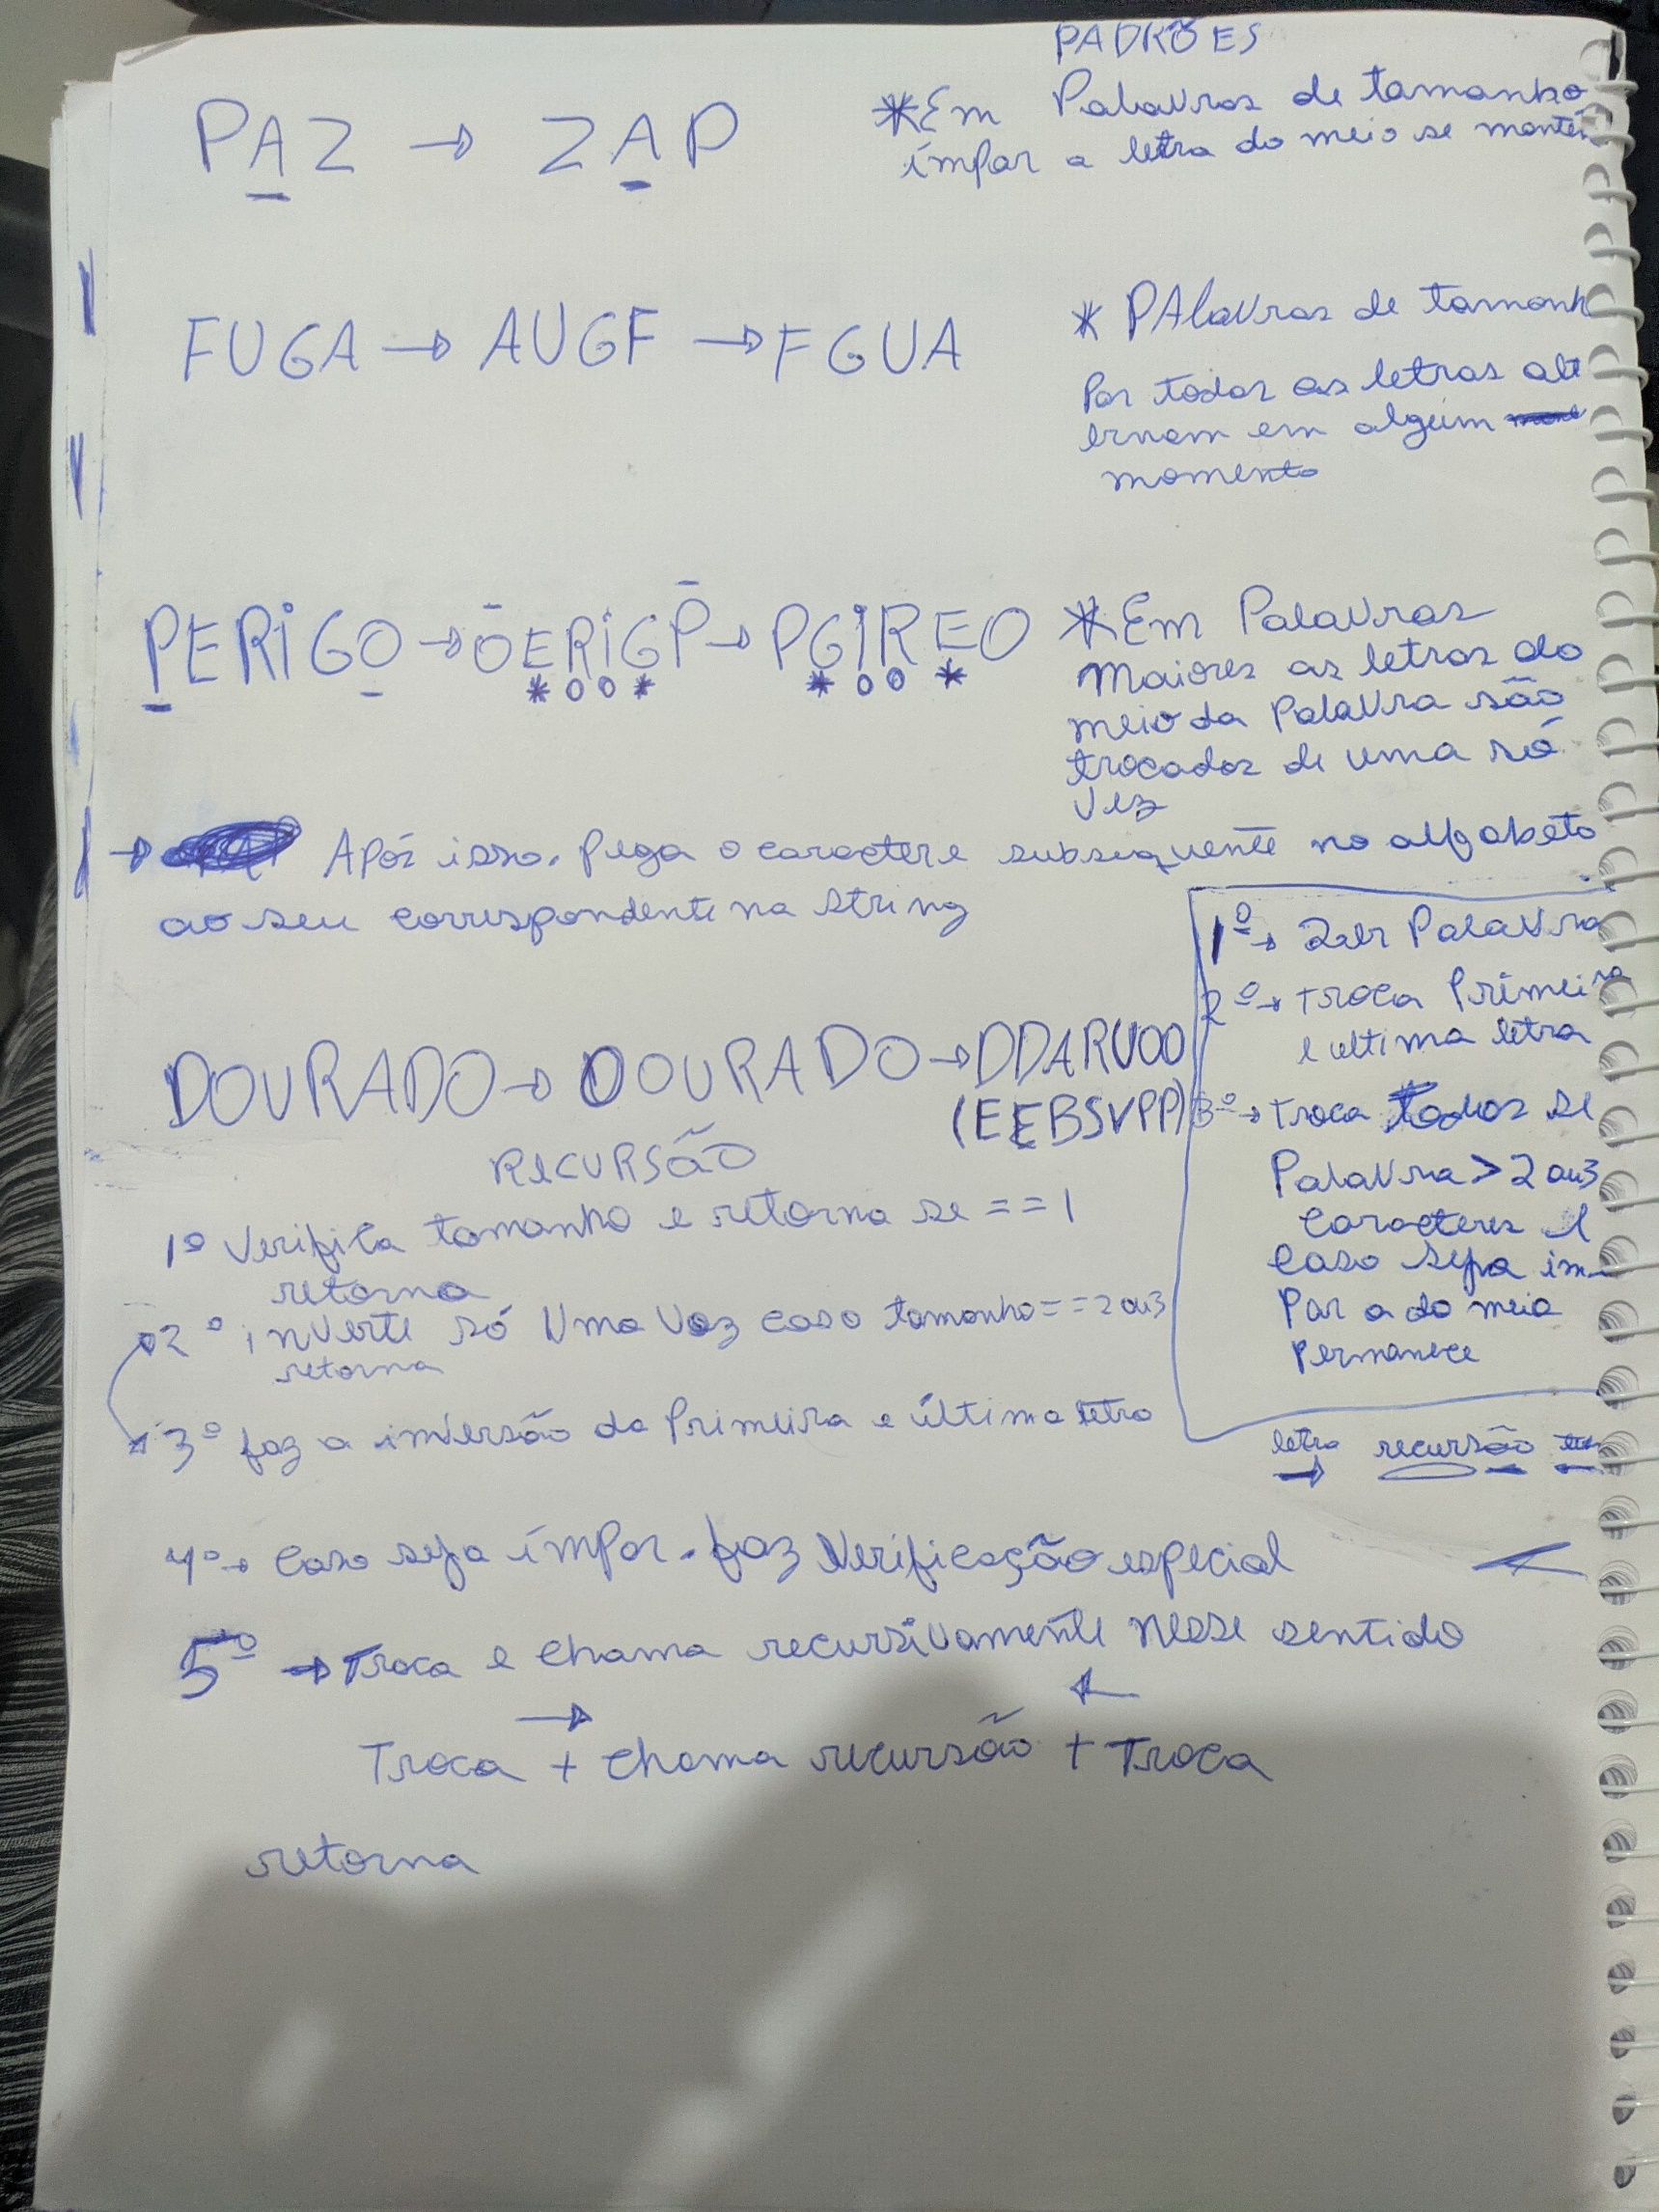 PADRÕES
PAZ → ZAP
*Em Palavras de tamanho
ímpar a letra do meio se mantém
FUGA → AUGF → FGUA
* PAlavras de tamanh
Par todas as letras alt
ernam em algum
momento
PERiGO → OERiGP → PGiREO
*Em Palavras
Maiores as letras do
meio da Palavra são
trocadas de uma só
vez
→ Após isso, Pega o caractere subsequente no alfabeto
ao seu correspondente na string
DOURADO → OOURADO → DDARUOO
(EEBSVPP)
1º → Ler Palavra
2º → troca Primeira
e ultima letra
3º → troca todos se
Palavra > 2 ou 3
caracteres e
caso seja im-
Par a do meio
Permanece
letra recursão
RECURSÃO
1º Verifica tamanho e retorna se == 1
retorna
2º inverte só Uma Vez caso tamanho == 2 ou 3
retorna
3º faz a inversão da Primeira e última letra
4º → Caso seja ímpar, faz Verificação especial ←
5º → Troca e chama recursivamente nesse sentido
→ ←
Troca + chama recursão + Troca
retorna